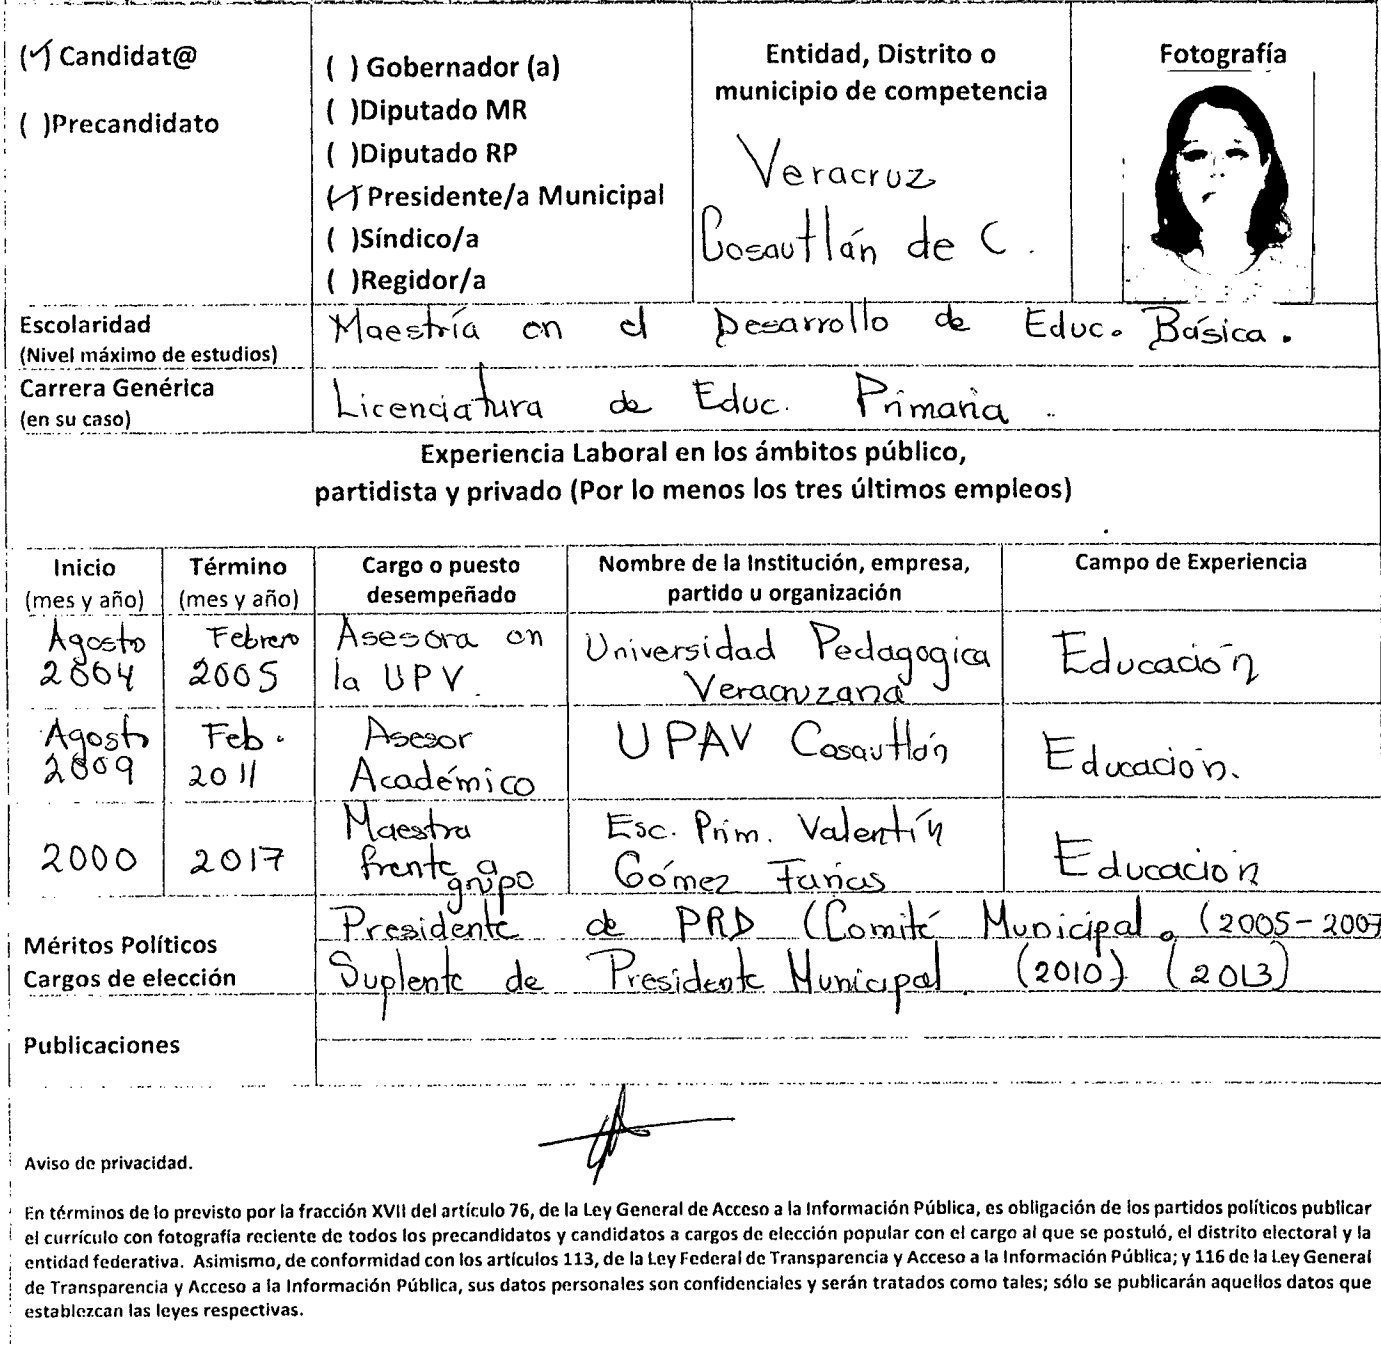 (✓) Candidat@
( )Precandidato
( ) Gobernador (a)
( )Diputado MR
( )Diputado RP
(✓) Presidente/a Municipal
( )Síndico/a
( )Regidor/a
Entidad, Distrito o
municipio de competencia
Veracruz
Cosautlán de C.
Fotografía
Escolaridad
(Nivel máximo de estudios)
Maestría en el Desarrollo de Educ. Básica.
Carrera Genérica
(en su caso)
Licenciatura de Educ. Primaria.
Experiencia Laboral en los ámbitos público,
partidista y privado (Por lo menos los tres últimos empleos)
Inicio
(mes y año)
Término
(mes y año)
Cargo o puesto
desempeñado
Nombre de la Institución, empresa,
partido u organización
Campo de Experiencia
Agosto
2004
Febrero
2005
Asesora en
la UPV.
Universidad Pedagogica
Veracruzana
Educación
Agosto
2009
Feb.
2011
Asesor
Académico
UPAV Cosautlán
Educación.
2000
2017
Maestra
frente a
grupo
Esc. Prim. Valentín
Gómez Farias
Educación
Méritos Políticos
Cargos de elección
Presidente de PRD (Comité Municipal. (2005-2007
Suplente de Presidente Municipal. (2010) (2013)
Publicaciones
Aviso de privacidad.
En términos de lo previsto por la fracción XVII del artículo 76, de la Ley General de Acceso a la Información Pública, es obligación de los partidos políticos publicar
el currículo con fotografía reciente de todos los precandidatos y candidatos a cargos de elección popular con el cargo al que se postuló, el distrito electoral y la
entidad federativa. Asimismo, de conformidad con los artículos 113, de la Ley Federal de Transparencia y Acceso a la Información Pública; y 116 de la Ley General
de Transparencia y Acceso a la Información Pública, sus datos personales son confidenciales y serán tratados como tales; sólo se publicarán aquellos datos que
establezcan las leyes respectivas.